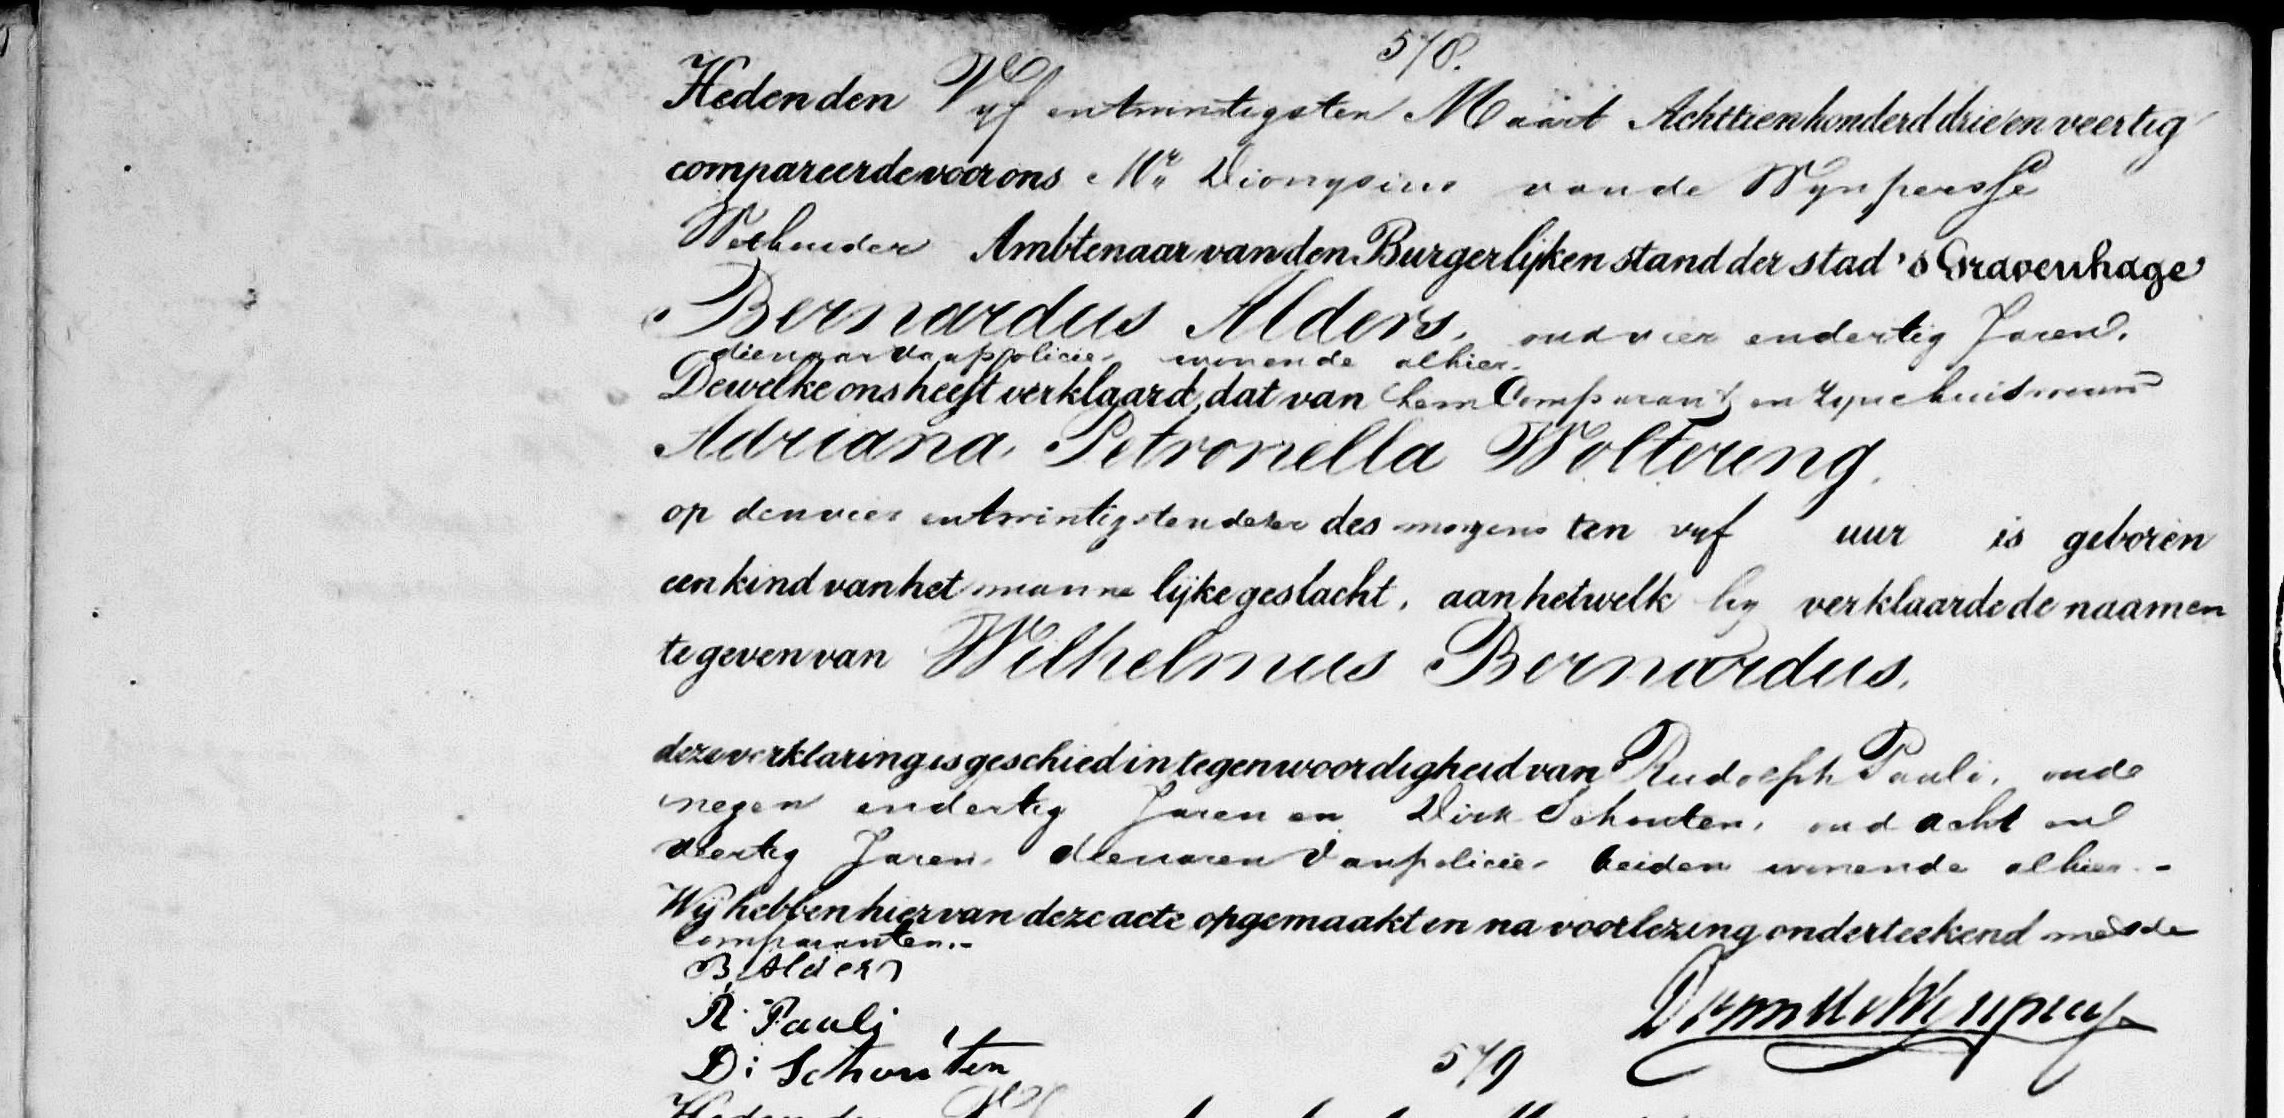 578.
Heden den Vyf entwintigsten Maart Achttienhonderd drie en veertig
compareerde voor ons Mr. Dionysius van de Wynpersse
Wethouder Ambtenaar van den Burgerlijken stand der stad 's Gravenhage
Bernardus Alders, oud vier endertig Jaren,
dienaar van policie, wonende alhier.
Dewelke ons heeft verklaard, dat van hem Comparant en zyne huisvrouw
Adriana, Petronella Woltering,
op den vier entwintigsten dezer des morgens ten vyf uur is geboren
een kind van het manne lijke geslacht, aan hetwelk hy verklaarde de naamen
te geven van Wilhelmus Bernardus.
deze verklaring is geschied in tegenwoordigheid van Rudolph Pauli, oud
negen endertig Jaren en Dirk Schouten, oud acht en
veertig Jaren, dienaren van policie, beiden wonende alhier.-
Wij hebben hier van deze acte opgemaakt en na voorlezing onderteekend met de
Comparanten.-
B, Alders
R. Pauli
D: Schouten
579
Heden den